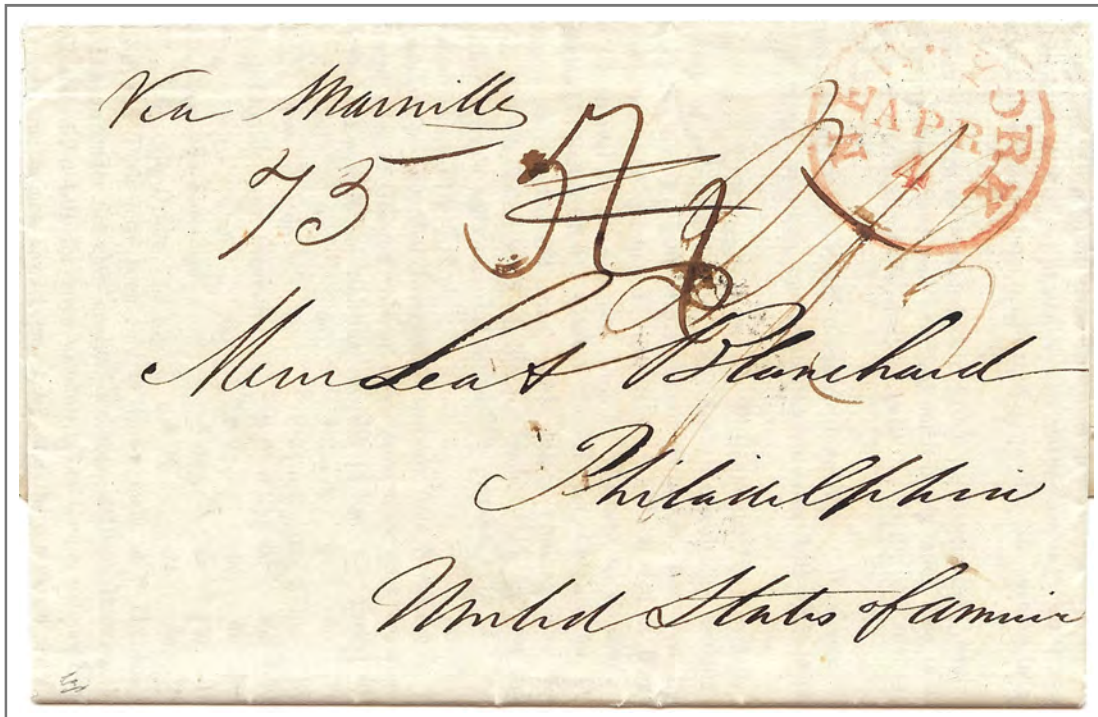 Via Marseilles
NEW YORK
APR
4
75
Messrs Lea & Blanchard
Philadelphia
United States of America